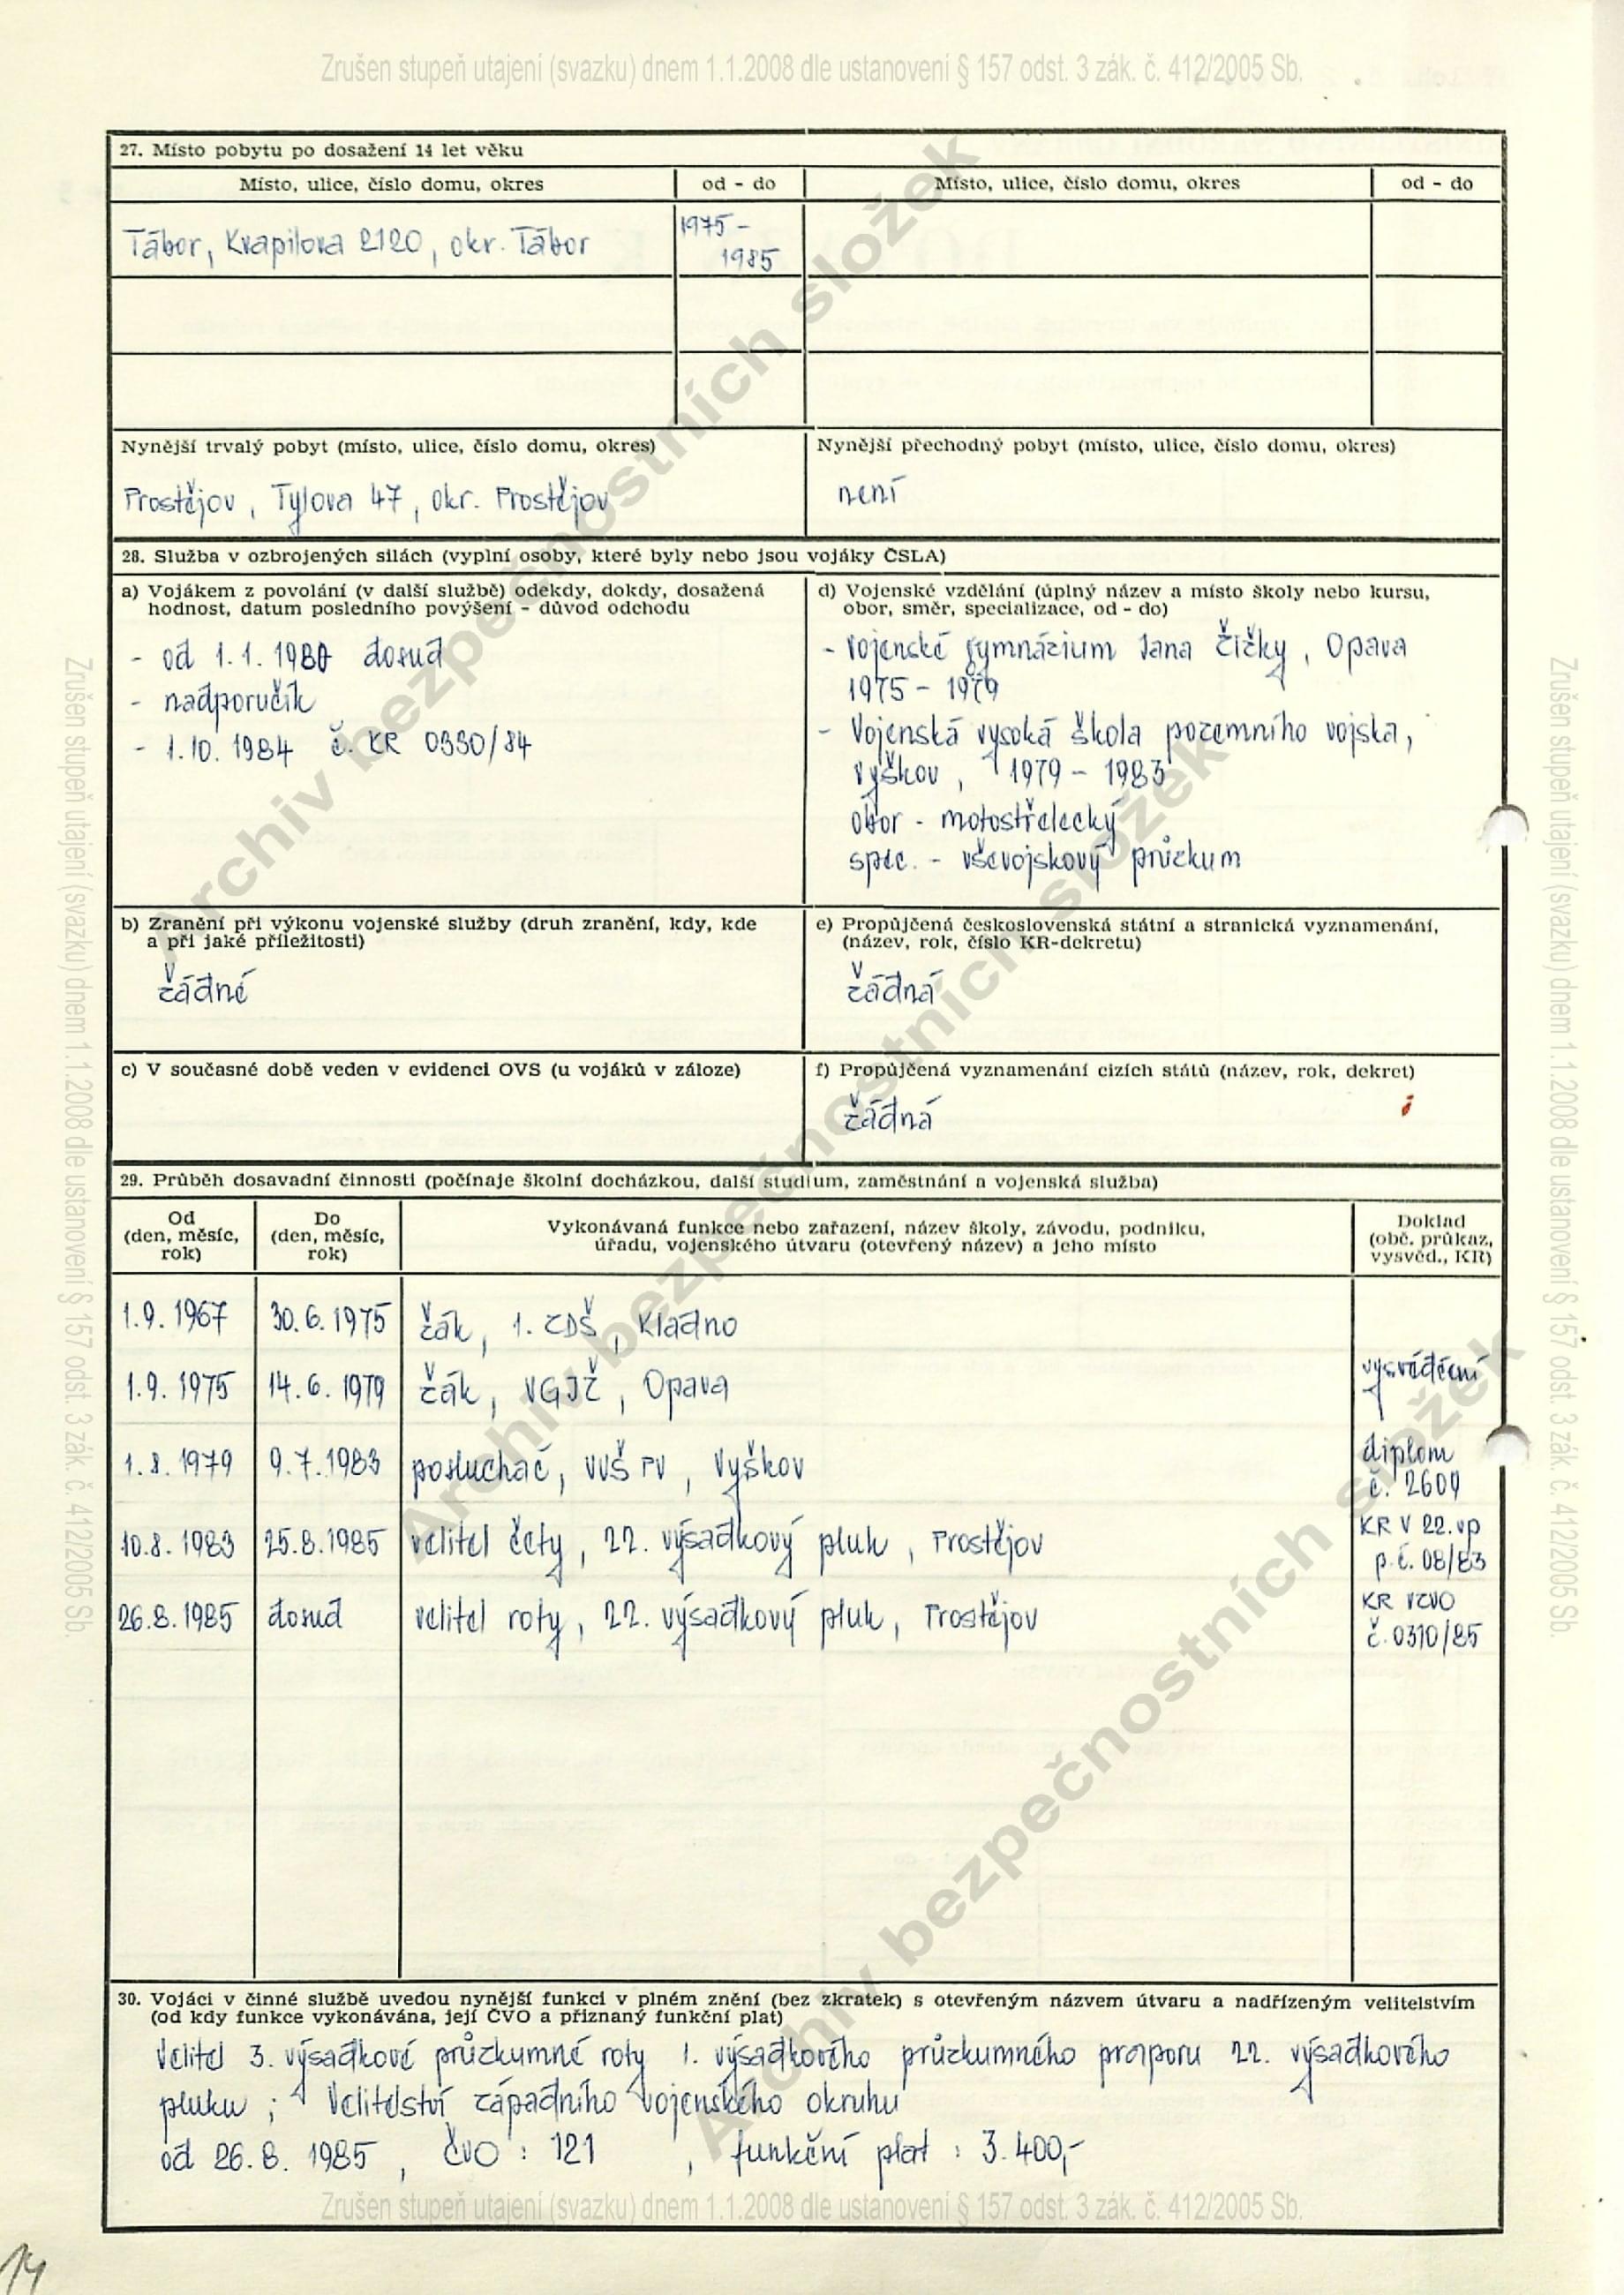 Zrušen stupeň utajení (svazku) dnem 1.1.2008 dle ustanovení § 157 odst. 3 zák. č. 412/2005 Sb.
27. Místo pobytu po dosažení 14 let věku
Místo, ulice, číslo domu, okres od - do Místo, ulice, číslo domu, okres od - do
Tábor, Kvapilova 2120, okr. Tábor 1975 -
1985
Nynější trvalý pobyt (místo, ulice, číslo domu, okres) Nynější přechodný pobyt (místo, ulice, číslo domu, okres)
Prostějov, Tylova 47, okr. Prostějov není
28. Služba v ozbrojených silách (vyplní osoby, které byly nebo jsou vojáky ČSLA)
a) Vojákem z povolání (v další službě) odekdy, dokdy, dosažená
hodnost, datum posledního povýšení - důvod odchodu
- od 1.1.1980 dosud
- nadporučík
- 1.10.1984 č. KR 0330/84
d) Vojenské vzdělání (úplný název a místo školy nebo kursu,
obor, směr, specializace, od - do)
- Vojenské gymnázium Jana Žižky, Opava
1975 - 1979
- Vojenská vysoká škola pozemního vojska,
Vyškov, 1979 - 1983
obor - motostřelecký
spec. - vševojskový průzkum
b) Zranění při výkonu vojenské služby (druh zranění, kdy, kde
a při jaké příležitosti)
žádné
e) Propůjčená československá státní a stranická vyznamenání,
(název, rok, číslo KR-dekretu)
žádná
c) V současné době veden v evidenci OVS (u vojáků v záloze)
f) Propůjčená vyznamenání cizích států (název, rok, dekret)
žádná
29. Průběh dosavadní činnosti (počínaje školní docházkou, další studium, zaměstnání a vojenská služba)
Od
(den, měsíc,
rok)
Do
(den, měsíc,
rok)
Vykonávaná funkce nebo zařazení, název školy, závodu, podniku,
úřadu, vojenského útvaru (otevřený název) a jeho místo
Doklad
(obč. průkaz,
vysvěd., KR)
1.9.1967 30.6.1975 žák, 1. ZDŠ, Kladno
1.9.1975 14.6.1979 žák, VGJŽ, Opava vysvědčení
1.8.1979 9.7.1983 posluchač, VVŠ PV, Vyškov diplom
č. 2609
10.8.1983 25.8.1985 velitel čety, 22. výsadkový pluk, Prostějov KR V 22.vp
p.č. 08/83
26.8.1985 dosud velitel roty, 22. výsadkový pluk, Prostějov KR VZVO
č. 0310/85
30. Vojáci v činné službě uvedou nynější funkci v plném znění (bez zkratek) s otevřeným názvem útvaru a nadřízeným velitelstvím
(od kdy funkce vykonávána, její ČVO a přiznaný funkční plat)
Velitel 3. výsadkové průzkumné roty 1. výsadkového průzkumného praporu 22. výsadkového
pluku ; Velitelství západního vojenského okruhu
od 26.8.1985, ČVO : 121, funkční plat : 3.400,-
Zrušen stupeň utajení (svazku) dnem 1.1.2008 dle ustanovení § 157 odst. 3 zák. č. 412/2005 Sb.
14
Zrušen stupeň utajení (svazku) dnem 1.1.2008 dle ustanovení § 157 odst. 3 zák. č. 412/2005 Sb.
Zrušen stupeň utajení (svazku) dnem 1.1.2008 dle ustanovení § 157 odst. 3 zák. č. 412/2005 Sb.
Archiv bezpečnostních složek
Archiv bezpečnostních složek
Archiv bezpečnostních složek